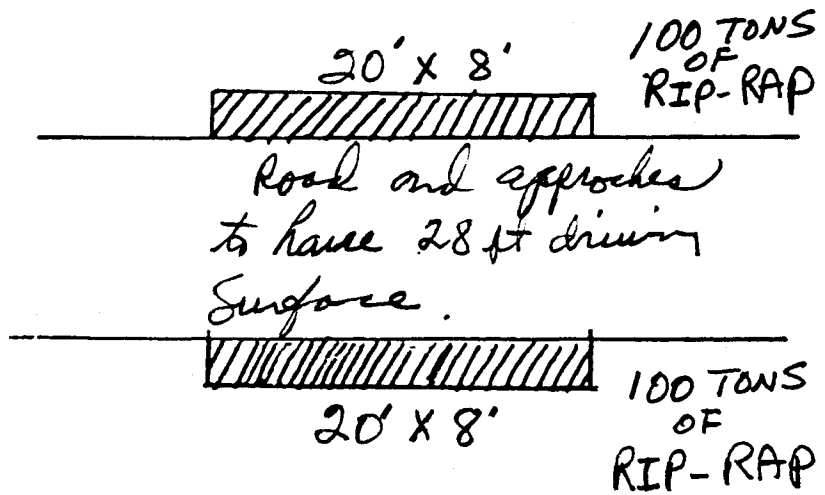 20' X 8'
100 TONS
OF
RIP-RAP
Road and approches
to have 28 ft driving
Surface.
20' X 8'
100 TONS
OF
RIP-RAP